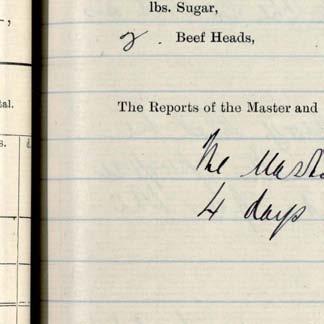 lbs. Sugar,
2. Beef Heads,
The Reports of the Master and
The Maste
4 days
tal.
s.